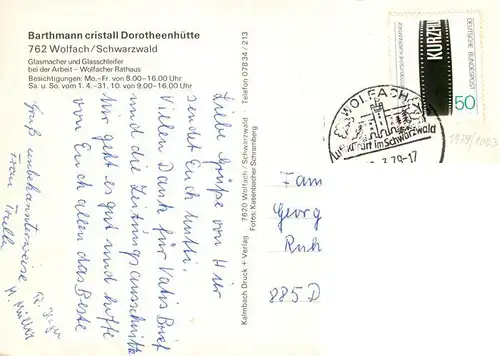 Barthmann cristall Dorotheenhütte
762 Wolfach/Schwarzwald
Glasmacher und Glasschleifer
bei der Arbeit – Wolfacher Rathaus
Besichtigungen: Mo.-Fr. von 8.00-16.00 Uhr
Sa. u. So. vom 1.4.-31.10. von 9.00-16.00 Uhr
Telefon 07834/213
7620 Wolfach/Schwarzwald
Fotos: Kasenbacher Schramberg
Kalmbach Druck + Verlag
Liebe Grüße von Hier
sendet Euch Mutti.
Vielen Dank für Vatis Brief
und die Zeitungsausschnitte
Mir geht es gut und hoffe
von Euch allen das Beste
Gruß unbekannterweise
Frau
H. Müller
KURZFILM
DEUTSCHE BUNDESPOST
50
WOLFACH
Luftkurort im Schwarzwald
.3.79-17
1979/1003
Fam
Georg
Ruh
885 D